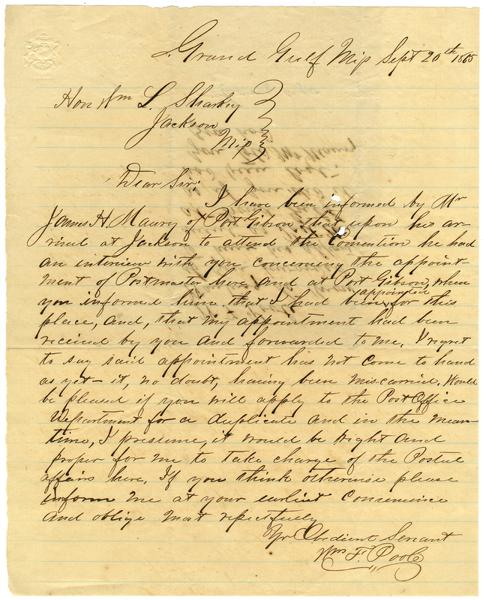 Grand Gulf Mip Sept 20th 1865
Hon Wm L. Sharkey
Jackson
Mip
Dear Sir:
I have been informed by Mr
James H. Maury of Port Gibson that upon his ar-
rival at Jackson to attend the Convention he had
an interview with you concerning the appoint-
ment of Postmaster here and at Port Gibson, when
you informed him that I had been appointed for this
place, and, that my appointment had been
received by you and forwarded to me. I regret
to say said appointment has not come to hand
as yet – it, no doubt, having been miscarried. Would
be pleased if you will apply to the Post Office
Department for a duplicate and in the mean-
time, I presume, it would be right and
proper for me to take charge of the Postal
affairs here. If you think otherwise please
inform me at your earliest convenience
and oblige most repectfully
Yr Obedient Servant
Wm F. Poole